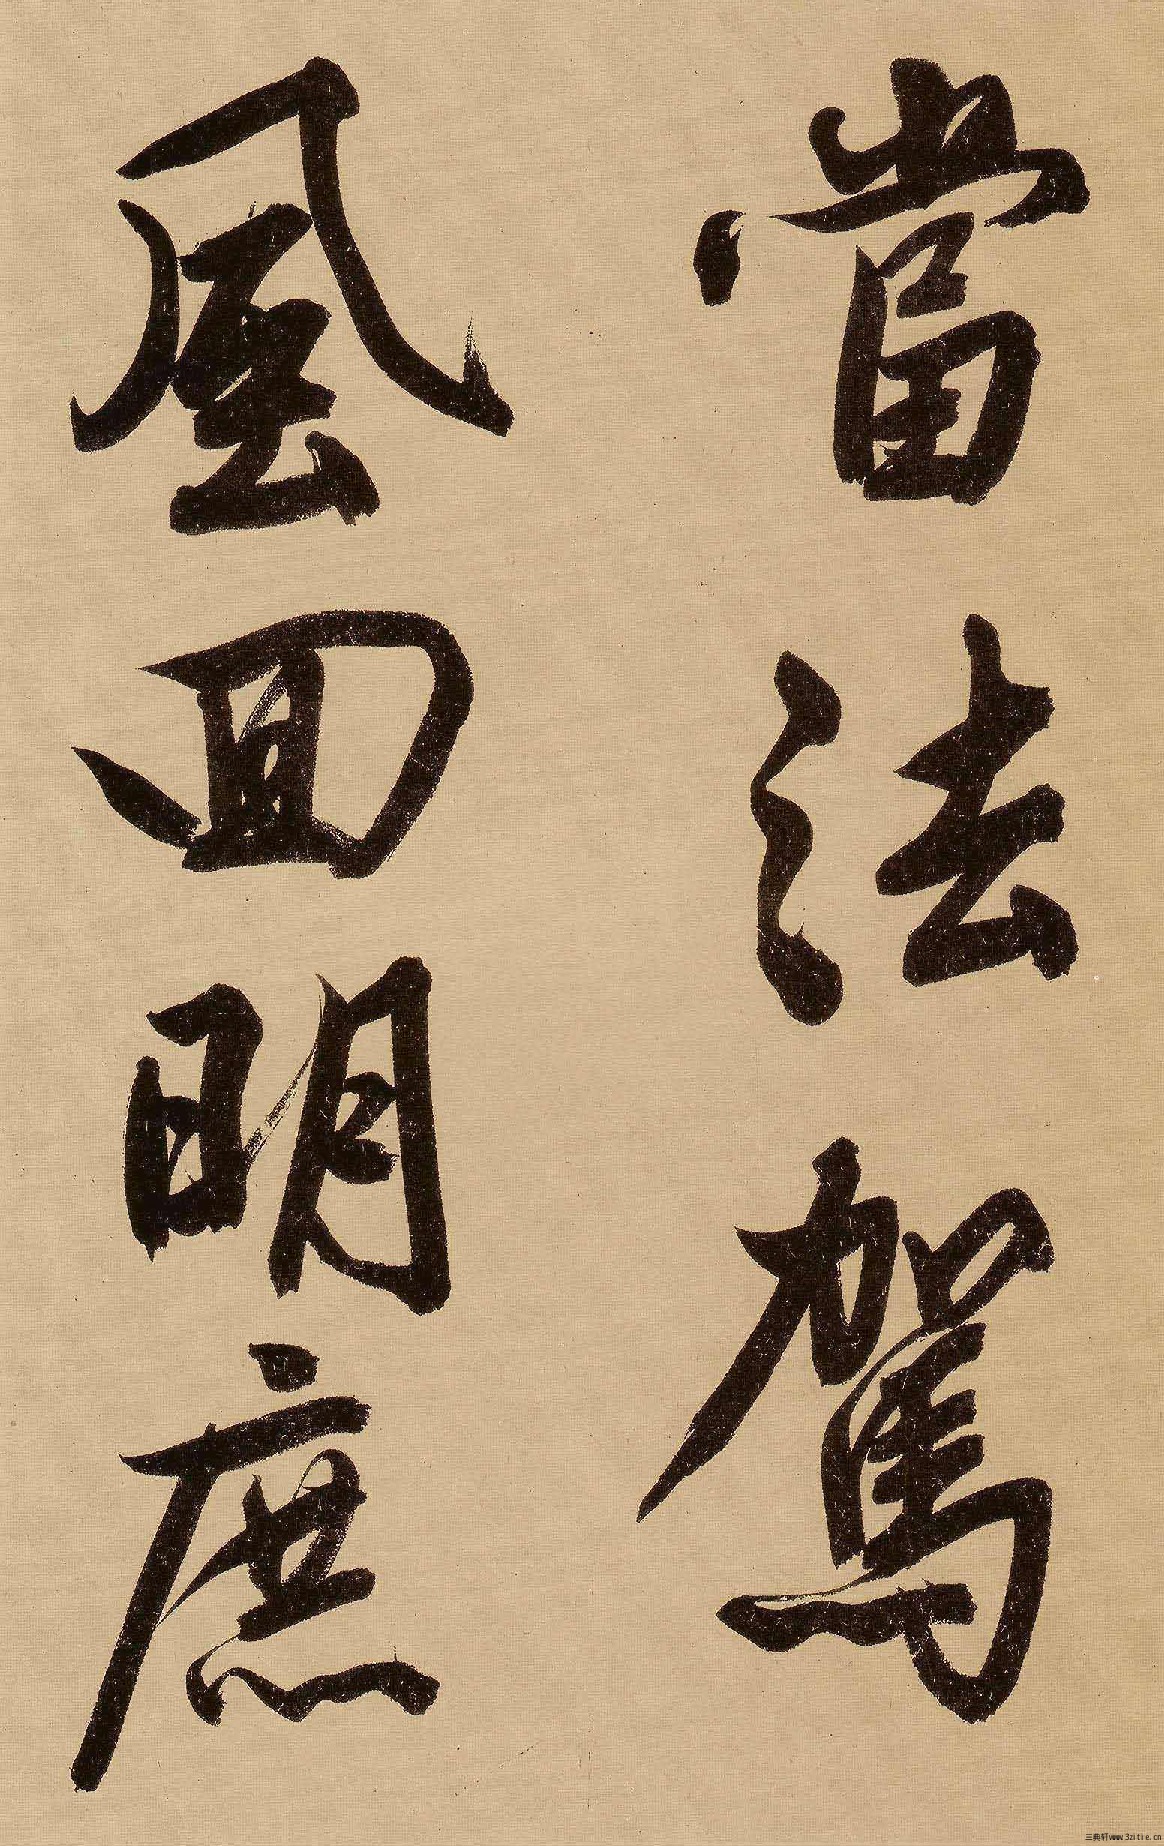 當法駕
風回明庶
三典轩www.3ztite.cn